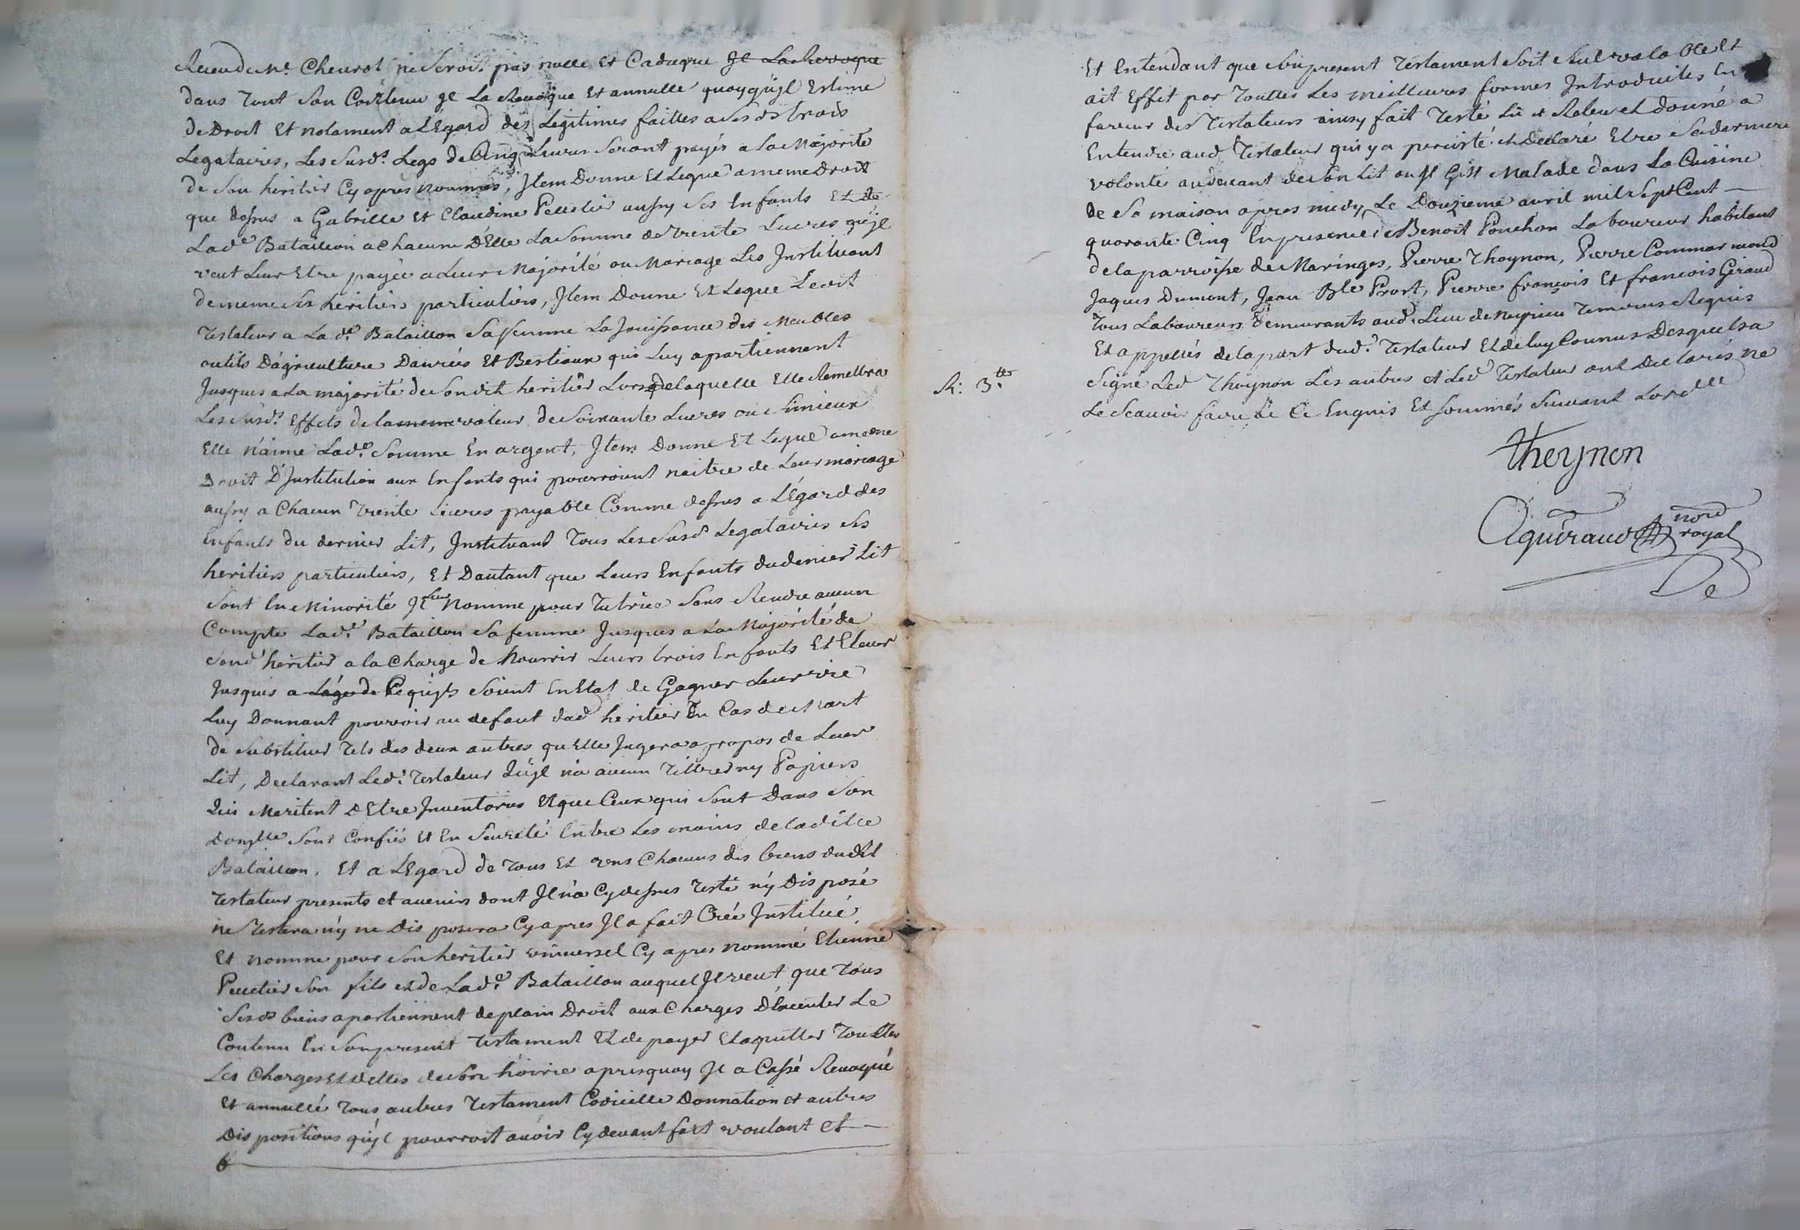 Receud Mr. Cheurot ne Seroit pas nulle Et Caduque Jl La Revoque
dans Tout Son Contenu Jl La Revoque Et annulle quoyqu'jl Estime
de Droit Et notament a L'Egard des Légitimes faittes a Ses ds trois
Legataires, Les Susds. Legs de Cinq Livres Seront payés a La Majorité
de Son heritier Cy apres nommés, Jtem Donne Et Legue a meme Droit
que dessus a Gabrielle Et Claudine Pelletier aussy Ses Enfants Et de
Lade. Bataillon a Chacune D'Elle La Somme de Trente Livres qu'jl
veut Leur Etre payée a Leur Majorité ou Mariage Les Jnstituant
de meme Ses heritiers particuliers, Jtem Donne Et Legue Ledit
Testateur a Lade. Bataillon Sa femme La Jouissance des Meubles
outils D'agriculture Danrées Et Bestiaux qui Luy apartiennent
Jusques a La majorité de Son dit heritier Lors de laquelle Elle Remettra
Les Susds. Effets de la meme valeur de Soixante Livres ou Si mieux
Elle n'aime Lade. Somme En argent, Jtem Donne Et Legue a meme
Droit D'Jnstitution aux Enfants qui pourroient naitre de Leur mariage
aussy a Chacun Trente Livres payable Comme dessus a L'Égard des
Enfants du dernier Lit, Jnstituant Tous Les Susds Legataires Ses
heritiers particuliers, Et Dautant que Leurs Enfants du dernier Lit
Sont En Minorité Jl Leur Nomme pour Tutrice Sans Rendre aucun
Compte Lade. Bataillon Sa femme Jusques a La Majorité de
Sond. heritier a la Charge de Nourrir Leurs trois Enfants Et Elever
Jusques a L'age de Ce qu'jls Soient En Etat de Gagner Leur vie
Luy Donnant pouvoir au defaut dud heritier En Cas de Mort
de Substituer Tels des deux autres qu'Elle Jugera a propos de Leur
Lit, Declarant Led. Testateur Qu'jl n'a aucun Tittres ny Papiers
Qui Meritent D'Etre Jnventoriés Et que Ceux qui Sont Dans Son
Domlle Sont Confiés Et En Seureté Entre Les mains de la ditte
Bataillon. Et a L'Egard de Tous Et uns Chacuns des biens dudit
Testateur presents et avenirs dont Jl n'a Cy dessus Testé n'y Disposé
ne Testera n'y ne Disposera Cy apres Jl a fait Créé Jnstitué
Et nomme pour Son heritier universel Cy apres nommé Etienne
Pelletier Son fils et de Lade. Bataillon auquel Jl veut que Tous
Ses ds biens apartiennent de plain Droit aux Charges D'Executer Le
Contenu En Son present Testament Et de payer Et aquitter Touttes
Les Charges Et dettes de Son hoirie apres quoy Jl a Cassé Revoqué
Et annullé Tous autres Testament Codicille Donnation et autres
Dispositions qu'jl pourroit avoir Cy devant fait voulant Et
6
Et Entendant que Son present Testament Soit Seul valable Et
ait Effet par Touttes Les meilleures formes Jntroduites En
faveur des Testateurs ainsy fait Testé Lu et Releu et donné a
Entendre aud. Testateur qui y a persisté et Declaré Etre Sa derniere
volonté au devant de Son Lit ou Jl Gist Malade dans La Cuisine
de Sa maison apres midy Le Douzieme avril mil Sept Cent
quarante Cinq En presence de Benoit Ponchon Laboureur habitant
de la parroisse de Maringes, Pierre Thoynon, Pierre Commarmond
Jaques Dumont, Jean Bte Prost, Pierre françois Et françois Giraud
Tous Laboureurs Demeurants aud. Lieu de Temoins Requis
Et appellés de la part dud. Testateur Et de luy Connus Desquels a
R: 3.tt
Signé Led Thoynon Les autres et Led Testateur ont Declarés ne
Le Scavoir faire de Ce Enquis Et Sommés Suivant Lordce
Theynon
Aguiraud nore
royal